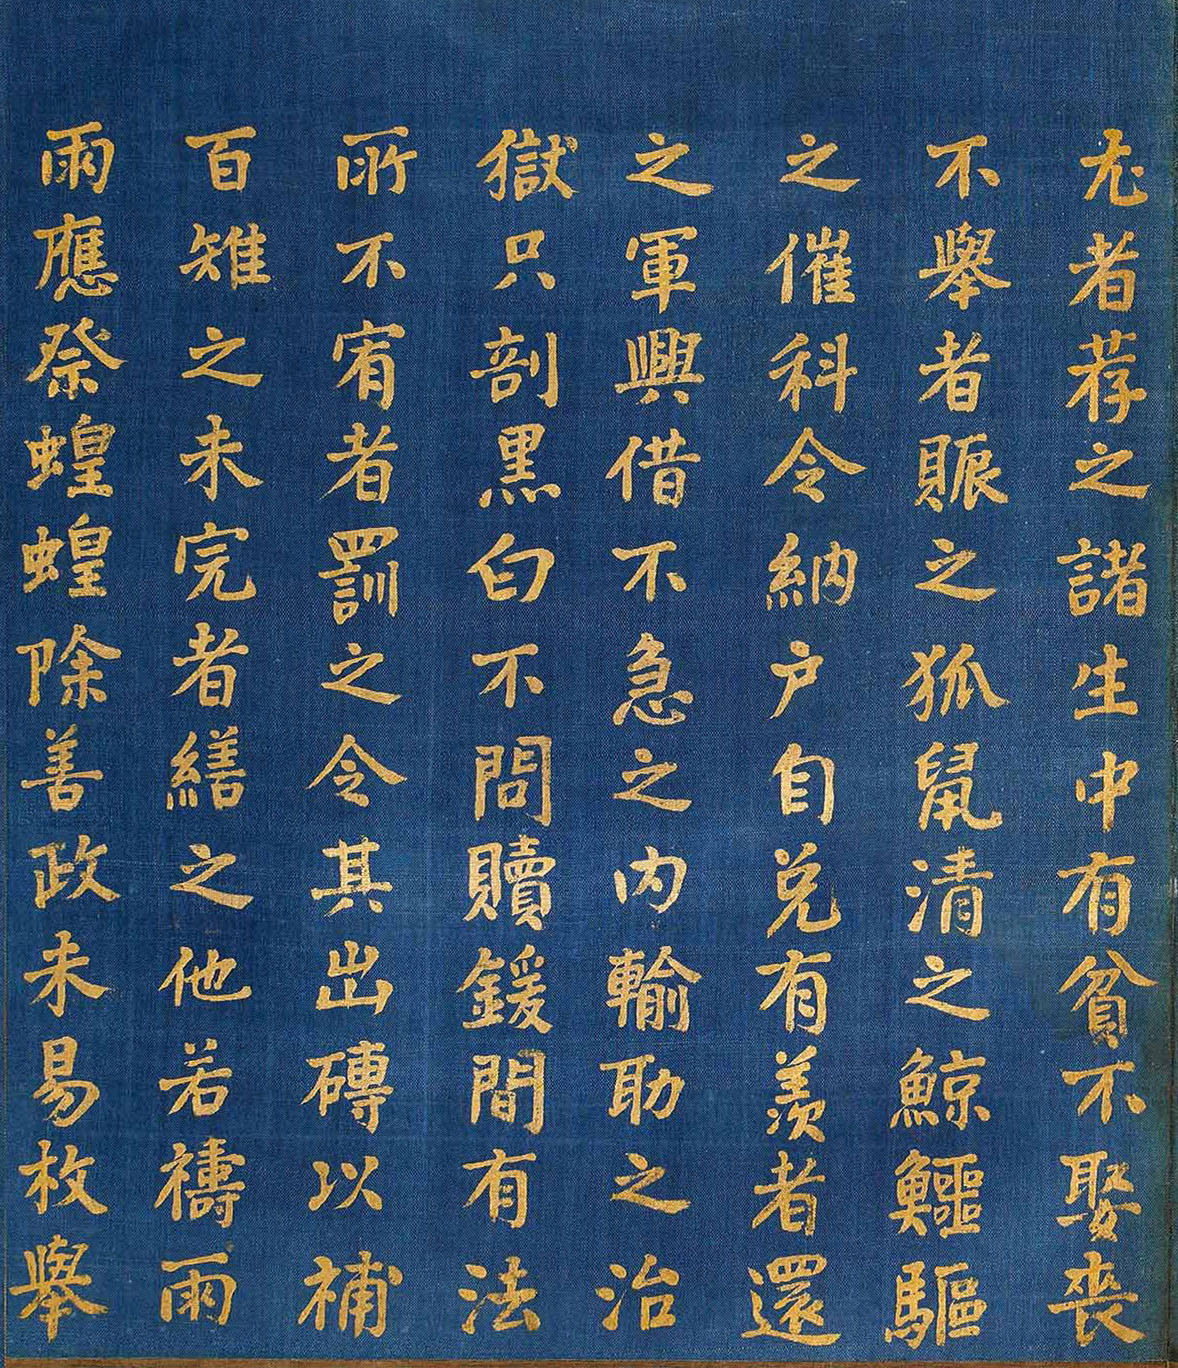 尤者荐之諸生中有貧不娶喪
不舉者賑之狐鼠清之鯨鱷驅
之催科令納户自兑有羡者還
之軍興借不急之内輸助之治
獄只剖黑白不問贖鍰間有法
所不宥者罰之令其出磚以補
百雉之未完者繕之他若禱雨
雨應祭蝗蝗除善政未易枚舉